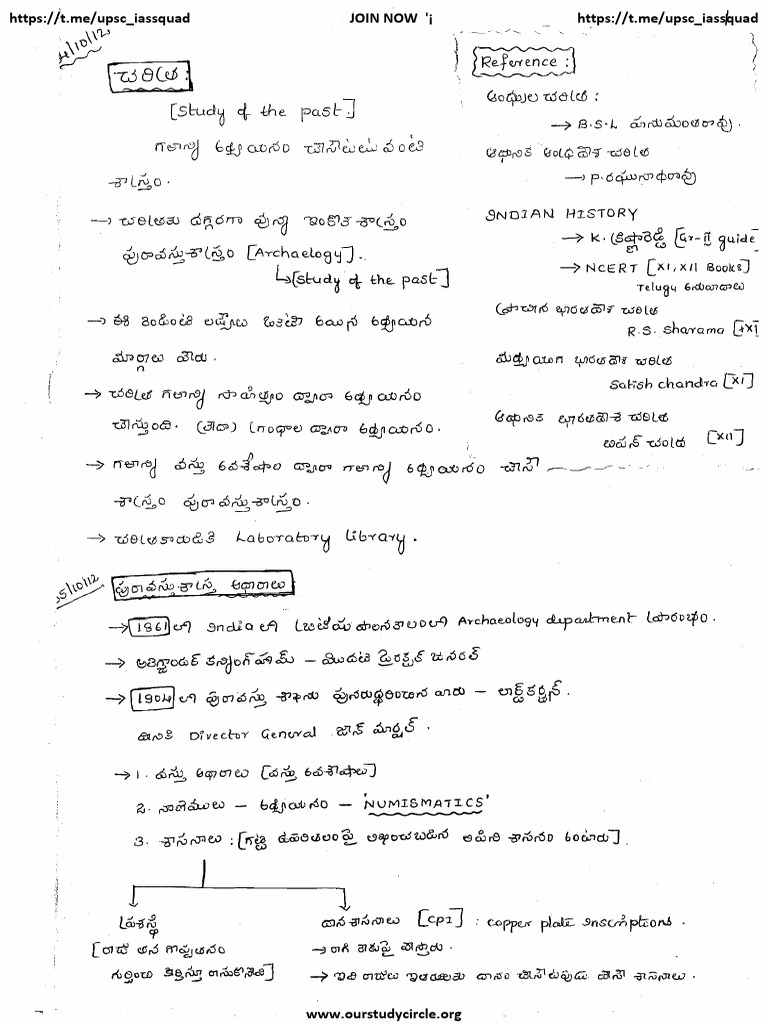 https://t.me/upsc_iassquad JOIN NOW https://t.me/upsc_iassquad
4/10/12
చరిత్ర :
[Study of the past]
గతాన్ని అధ్యయనం చేసేటటువంటి
శాస్త్రం.
→ చరిత్రకు దగ్గరగా వున్న ఇంకొక శాస్త్రం
పురావస్తుశాస్త్రం [Archaelogy].
↳ [study of the past]
→ ఈ రెండింటి లక్ష్యాలు ఒకటే అయిన అధ్యయన
మార్గాలు వేరు.
→ చరిత్ర గతాన్ని సాహిత్యం ద్వారా అధ్యయనం
చేస్తుంది. (లేదా) గ్రంథాల ద్వారా అధ్యయనం.
→ గతాన్ని వస్తు అవశేషాల ద్వారా గతాన్ని అధ్యయనం చేసే
శాస్త్రం పురావస్తుశాస్త్రం.
→ చరిత్రకారుడికి Laboratory Library.
Reference :
ఆంధ్రుల చరిత్ర :
→ B.S.L హనుమంతరావు.
ఆధునిక ఆంధ్రదేశ చరిత్ర
→ P. రఘునాథరావు
INDIAN HISTORY
→ K. క్రిష్ణారెడ్డి [Gr-II guide
→ NCERT [XI, XII Books]
Telugu అనువాదాలు
ప్రాచీన భారతదేశ చరిత్ర
R.S. Sharama
మధ్యయుగ భారతదేశ చరిత్ర
Satish chandra [XI]
ఆధునిక భారతదేశ చరిత్ర
బిపన్ చంద్ర [XII]
5/10/12
పురావస్తుశాస్త్ర ఆధారాలు
→ 1861 లో India లో బ్రిటిష్ పాలనకాలంలో Archaeology department ప్రారంభం.
→ అలెగ్జాండర్ కన్నింగ్‌హామ్ – మొదటి డైరెక్టర్ జనరల్
→ 1904 లో పురావస్తు శాఖను పునరుద్ధరించిన వారు – లార్డ్ కర్జన్.
దానికి Director General జాన్ మార్షల్.
→ 1. వస్తు ఆధారాలు [వస్తు అవశేషాలు]
2. నాణెములు – అధ్యయనం – 'NUMISMATICS'
3. శాసనాలు : [గట్టి ఉపరితలంపై లిఖించబడిన లిపిని శాసనం అంటారు].
ప్రశస్తి
[రాజు తన గొప్పతనం
గుర్తించి కీర్తిస్తూ రాసుకొనేది]
దాన శాసనాలు [CPI] : copper plate Inscriptions.
→ రాగి రేకుపై వేస్తారు.
→ ఇవి రాజులు ఇతరులకు దానం చేసేటపుడు వేసే శాసనాలు.
www.ourstudycircle.org